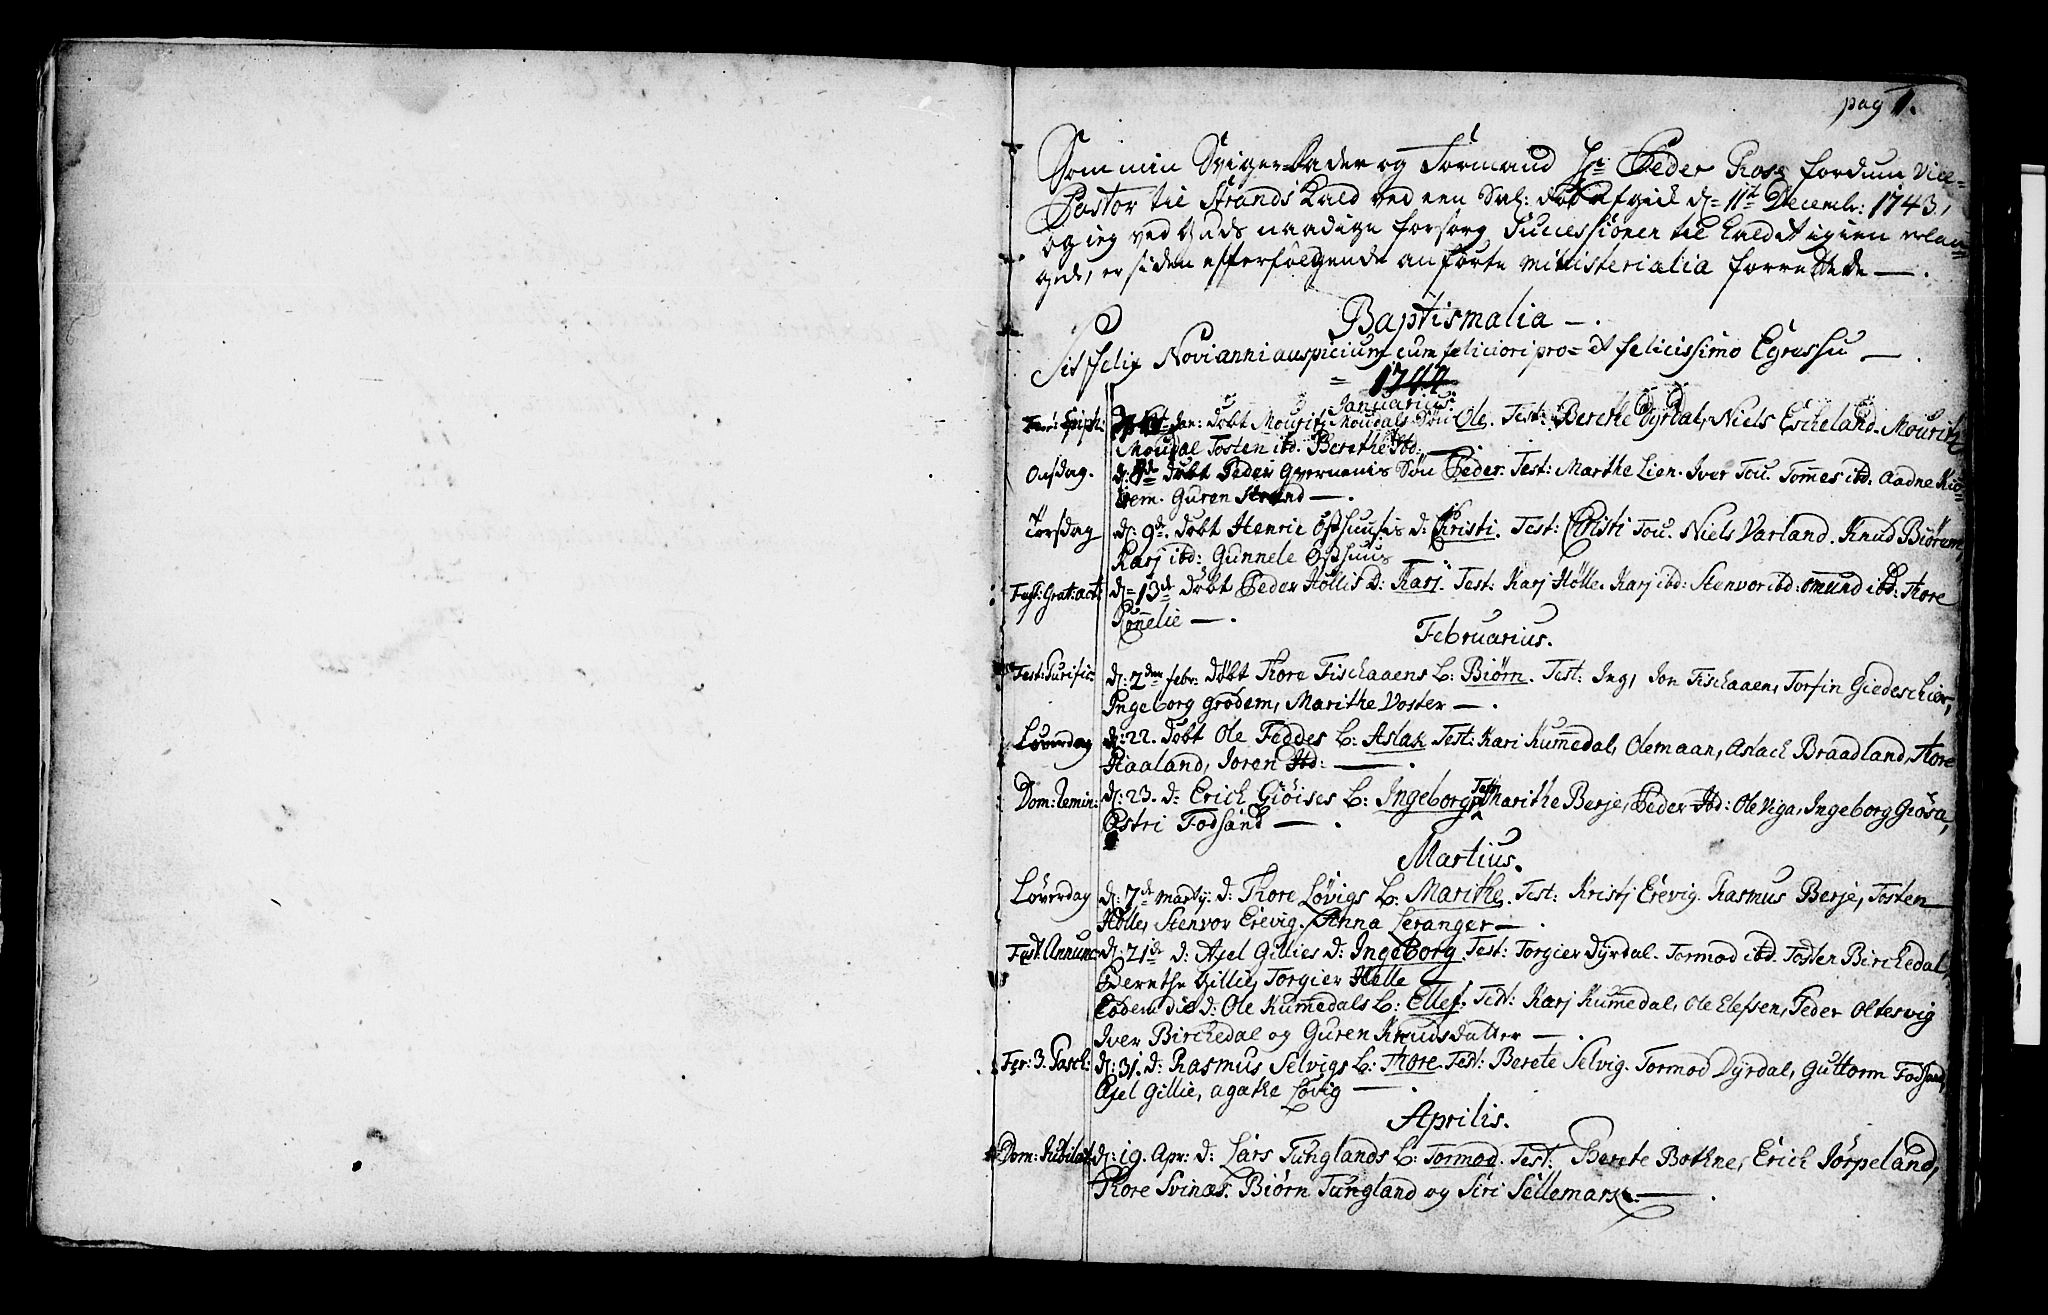 pag 1.
Som min Sviger-Fader og Formand Hr: Peder Rose fordum Vice-
Pastor til Strands Kald ved een Sal: død afgick d: 11te Decembr: 1743,
og ieg ved Guds naadige forsorg Successionen til Kaldet igien erlan-
gede, er siden efterfølgende anførte ministerialia forrettede — .
Baptismalia — .
Sit felix Novi anni auspicium cum feliciori pro= et felicissimo Egressu — .
= 1744
Januarius.
Epiph: Jan: døbt Mouritz Moudals Søn Ole. Test: Berethe Dyrdal, Niels Eskeland. Mouritz
Moudal Tosten ibd. Berethe ibd: —
Onsdag. d: 8de døbt Peder Søn Peder. Test: Marthe Lien. Iver Tou. Tommes ibd. Aadne Biø-
rem. Guren Strand — .
Torsdag d: 9de. døbt Henric Østhuuses d: Kristi. Test: Christi Tou. Niels Varland. Knud Biørem,
Karj ibd: Gunnele Østhuus —
Fest: Grat: act: d: 13de døbt Peder Høllis D: Karj. Test: Karj Hølle. Karj ibd: Stenvor ibd: omund ibd: Tore
— .
Februarius.
Fest: Purific: d: 2den febr: døbt Thore Fischaaens b: Biørn. Test: Ing, Jon Fischaaen, Torfin Giedeschier,
Ingeborg Grødem, Marithe Voster — .
Løverdag d: 22. døbt Ole Feddes b: Aslak Test: Kari Kummedal, Ole maan, Aslach Braadland, Thore
Haaland, Joren ibd: — .
Dom: Remin: d: 23. d: Erich Giöises b: Ingeborg, Test: Marithe Berje, Peder ibd: Ole Viga, Ingeborg Giösa,
Ostri Fodsand — .
Martius.
Løverdag d: 7de martij. d: Thore Løvigs b: Marithe. Test: Kristj Erevig. Rasmus Berje, Tosten
Hølle, Stenvor Erevig. Anna Leranger — .
Fest: Annunc: d: 21de d: Axel Gillies d: Ingeborg Test: Torgier Dyrdal. Tormod ibd. Tosten Birchedal,
Berethe Gillie, Torgier Helle
Eodem die d: Ole Kummedals b: Ellef. Test: Karj Kummedal, Ole Elefsen, Peder Oltesvig
Iver Birchedal og Guren Knudsdatter — .
Fer: 3. Pasch: d: 31. d: Rasmus Selvigs b: Thore. Test: Berete Selvig. Tormod Dyrdal, Guttorm Fodsand,
Axel Gillie, agathe Løvig — .
Aprilis.
Dom: Jubilat: d: 19. Apr: d: Lars Tunglands b: Tormod. Test: Berete Bothne, Erich Jörpeland,
Thore Svinæs. Biørn Tungland og Siri Sellemark — .